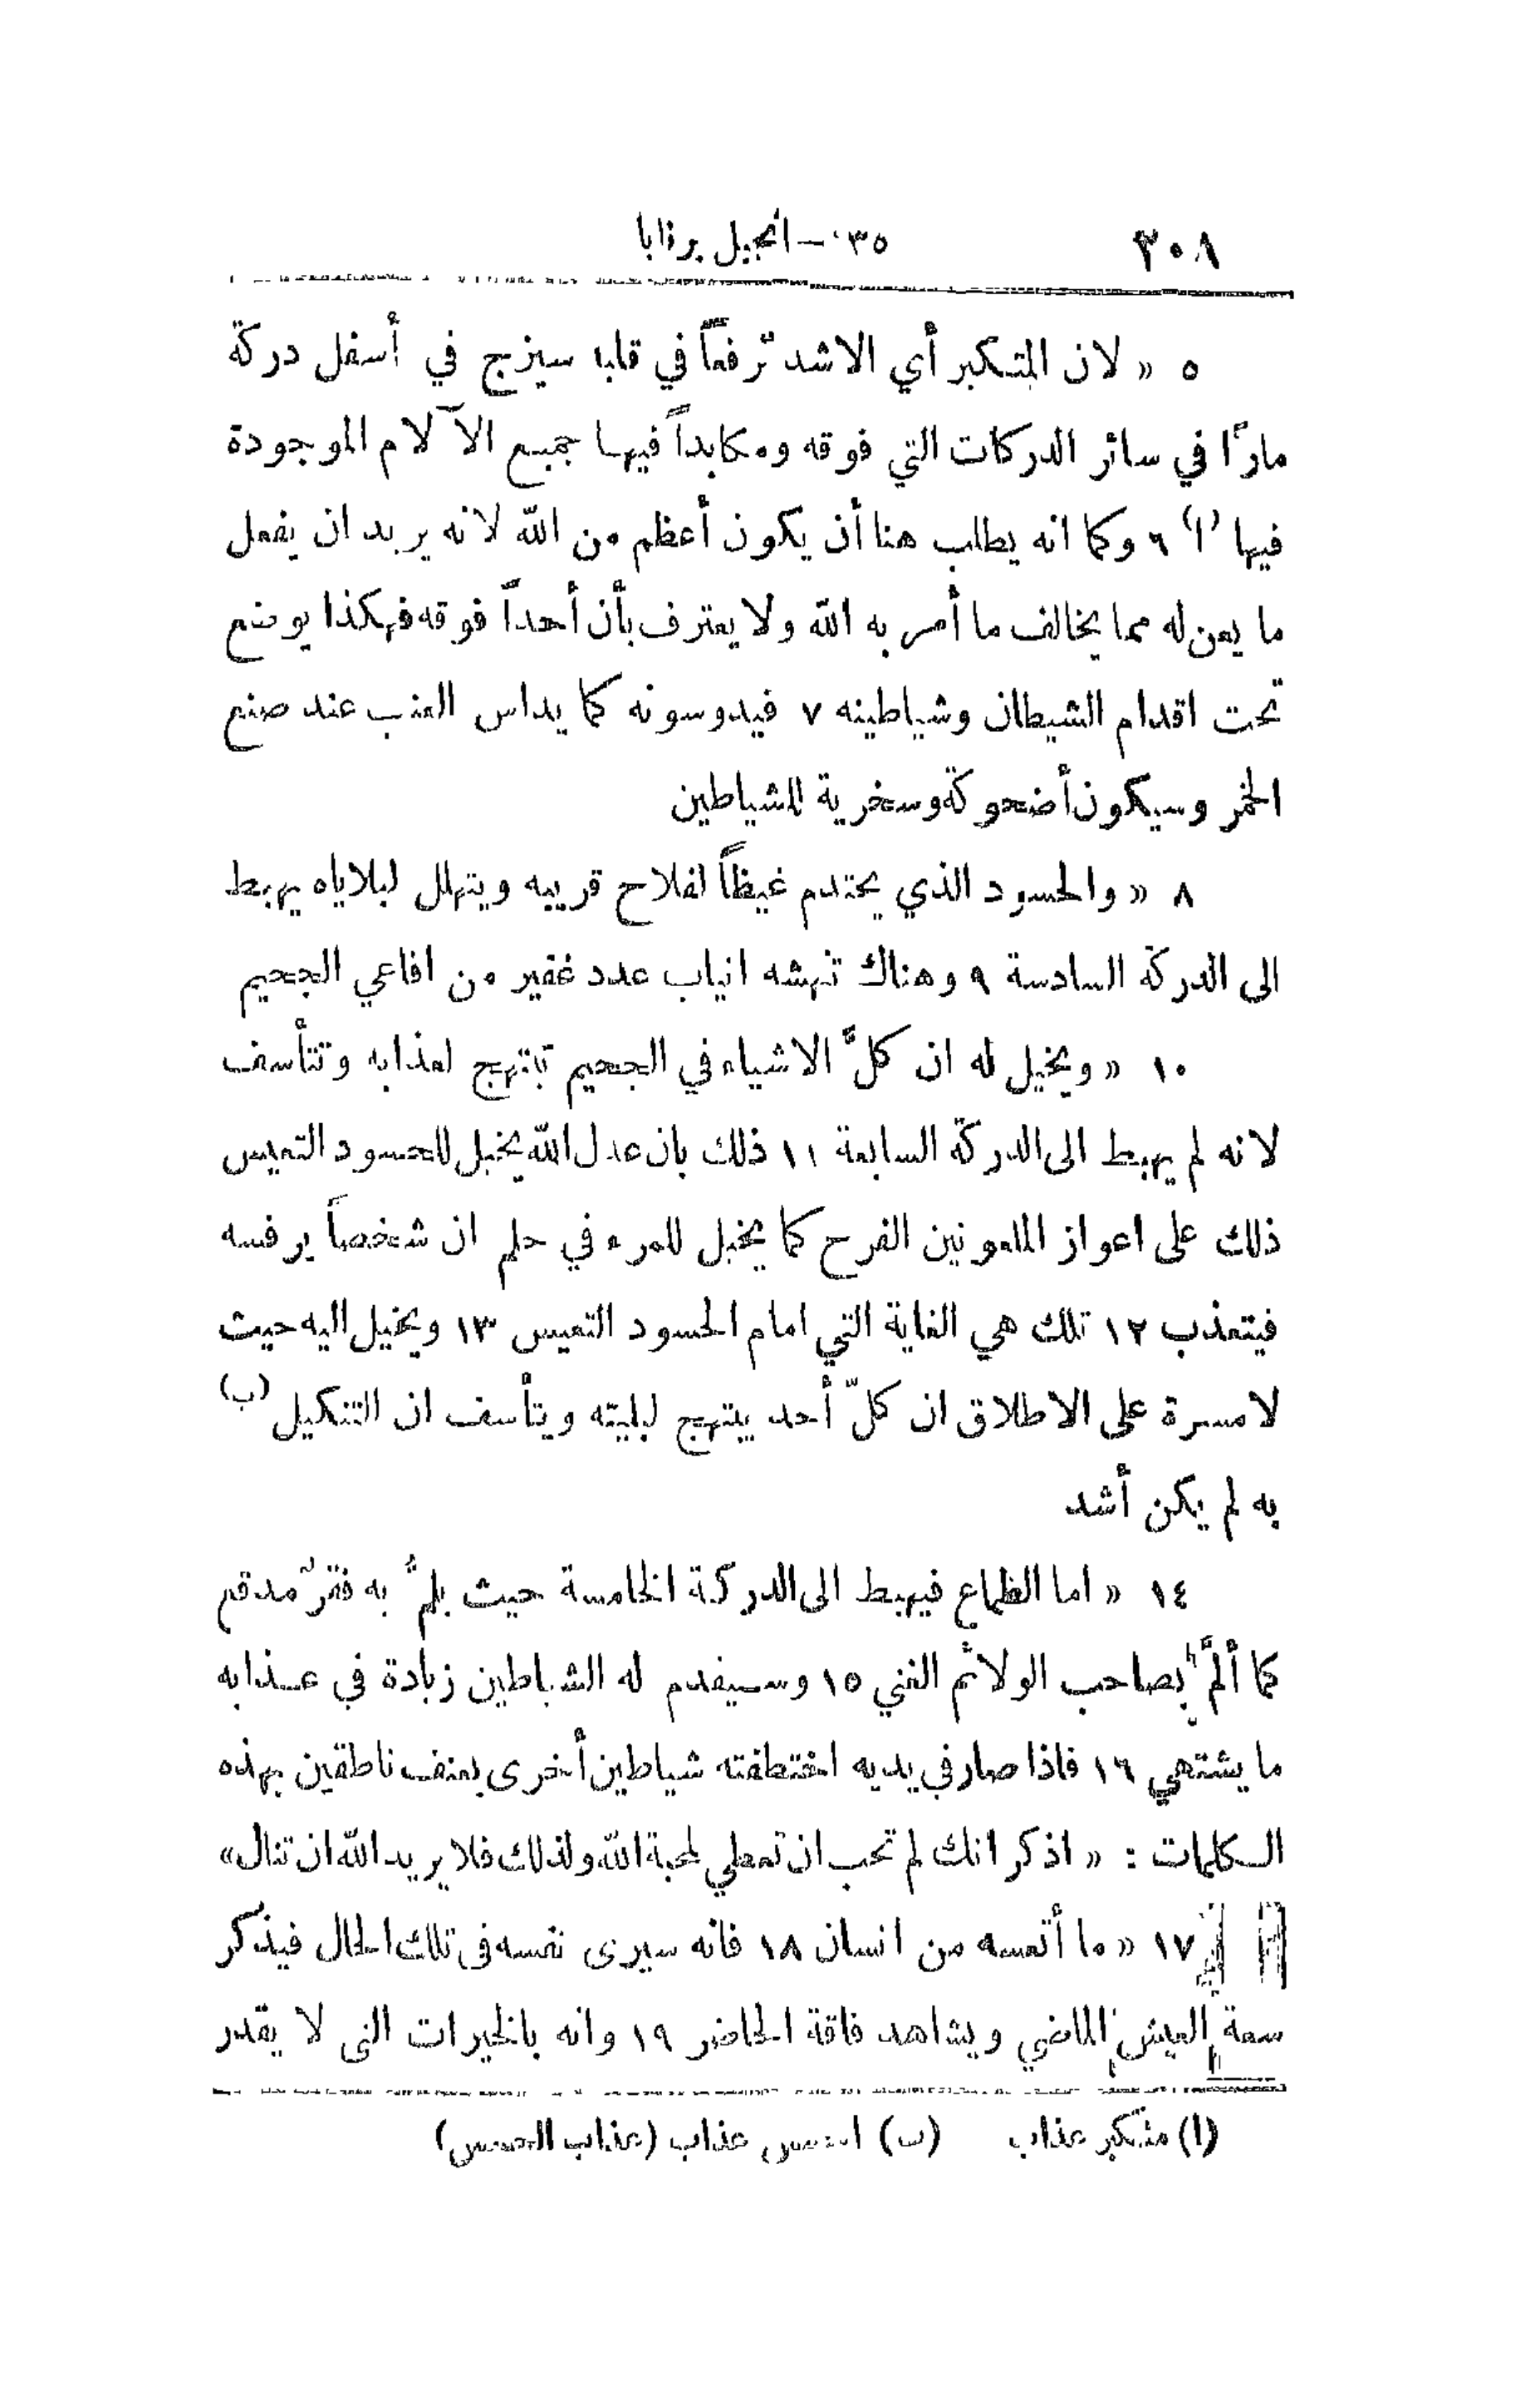 ٢٠٨ ١٣٥ — انجيل برنابا
٥ « لان المتكبر أي الاشد ترفعاً في قلبه سيزج في أسفل دركة
مارًا في سائر الدركات التي فوقه ومكابداً فيها جميع الآلام الموجودة
فيها (ا) ٦ وكما انه يطلب هنا أن يكون أعظم من الله لانه يريد ان يفعل
ما يعن له مما يخالف ما أمر به الله ولا يعترف بأن أحداً فوقه فهكذا يوضع
تحت اقدام الشيطان وشياطينه ٧ فيدوسونه كما يداس العنب عند صنع
الخمر وسيكون أضحوكة وسخرية للشياطين
٨ « والحسود الذي يحتدم غيظاً لفلاح قريبه ويتهلل لبلاياه يهبط
الى الدركة السادسة ٩ وهناك تنهشه انياب عدد غفير من افاعي الجحيم
١٠ « ويخيل له ان كلَّ الاشياء في الجحيم تبتهج لعذابه وتتأسف
لانه لم يهبط الى الدركة السابعة ١١ ذلك بان عدل الله يخيل للحسود التعيس
ذلك على اعواز الملعونين الفرح كما يخيل للمرء في حلم ان شخصاً يرفسه
فيتعذب ١٢ تلك هي الغاية التي امام الحسود التعيس ١٣ ويخيل اليه حيث
لا مسرة على الاطلاق ان كلّ أحد يبتهج لبليته ويتأسف ان التنكيل (ب)
به لم يكن أشد
١٤ « اما الطماع فيهبط الى الدركة الخامسة حيث يلمُّ به فقرٌ مدقع
كما ألمَّ بصاحب الولائم الغني ١٥ وسيقدم له الشياطين زيادة في عذابه
ما يشتهي ١٦ فاذا صار في يديه اختطفته شياطين أخرى بعنف ناطقين بهذه
الكلمات : « اذكر انك لم تحب ان تعطي لمحبة الله ولذلك فلا يريد الله ان تنال »
١٧ « ما أتعسه من انسان ١٨ فانه سيرى نفسه في تلك الحال فيذكر
سعة العيش الماضي ويشاهد فاقة الحاضر ١٩ وانه بالخيرات التي لا يقدر
(ا) متكبر عذاب (ب) عذاب (عذاب